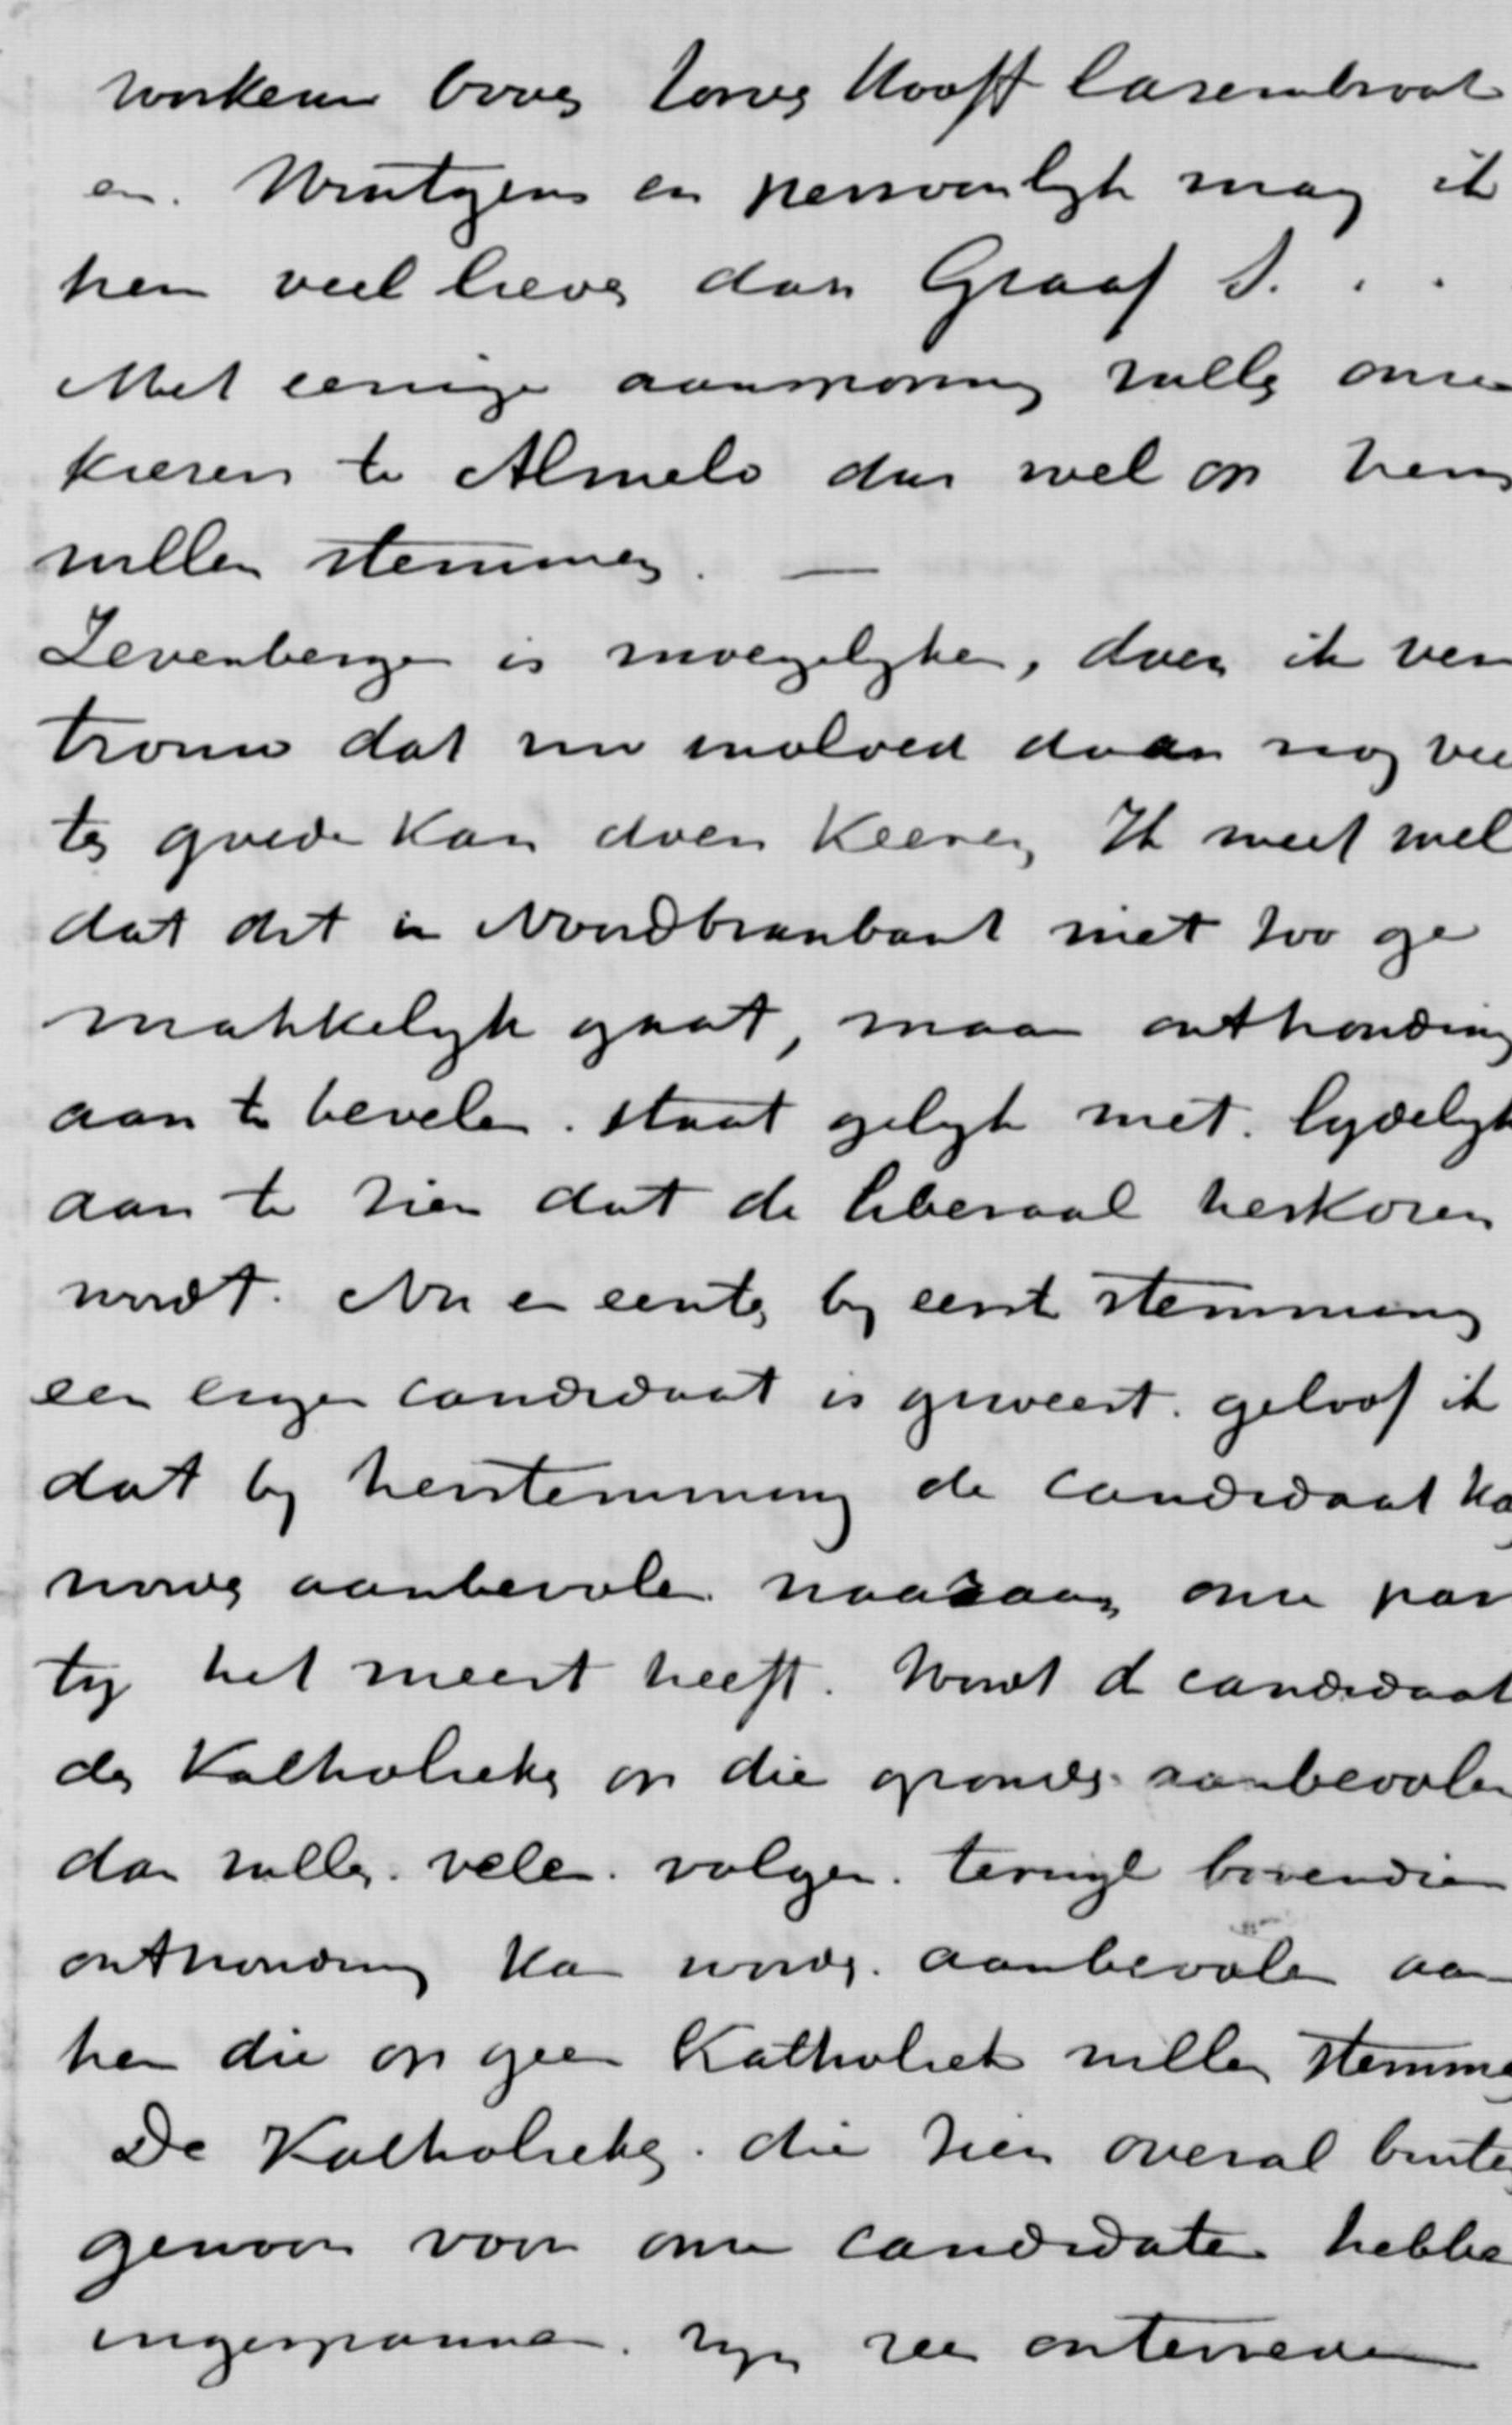 voorkeur boven Corver Hooft Casembroot
en Wintgens en persoonlijk mag ik
hem veel liever dan Graaf S. . .
Met eenige aansporing zullen onze
kiezers te Almelo dus wel op hem
willen stemmen. —
Zevenbergen is moeyelyker, doch ik ver
trouw dat uw invloed daar nog veel
ten goede kan doen keeren Ik weet wel
dat dit in Noordbranbant niet zoo ge
makkelyk gaat, maar onthouding
aan te bevelen. staat gelyk met. lydelyk
aan te zien dat de liberaal herkozen
wordt. Nu er eenter by eerste stemming
een eigen candidaat is geweest. geloof ik
dat by herstemming de candidaat kan
worden aanbevolen naast aan onze par
ty het meest heeft. Wordt de candidaat
der Katholieken op die gronden aanbevolen
dan zullen. velen. volgen. terwyl bovendien
onthouding kan worden. aanbevolen aan
hen die op geen Katholiek willen stemmen
De Katholieken. die zich overal buiten
gewoon voor onze candidaten hebben
ingespannen. zyn zeer ontevreden